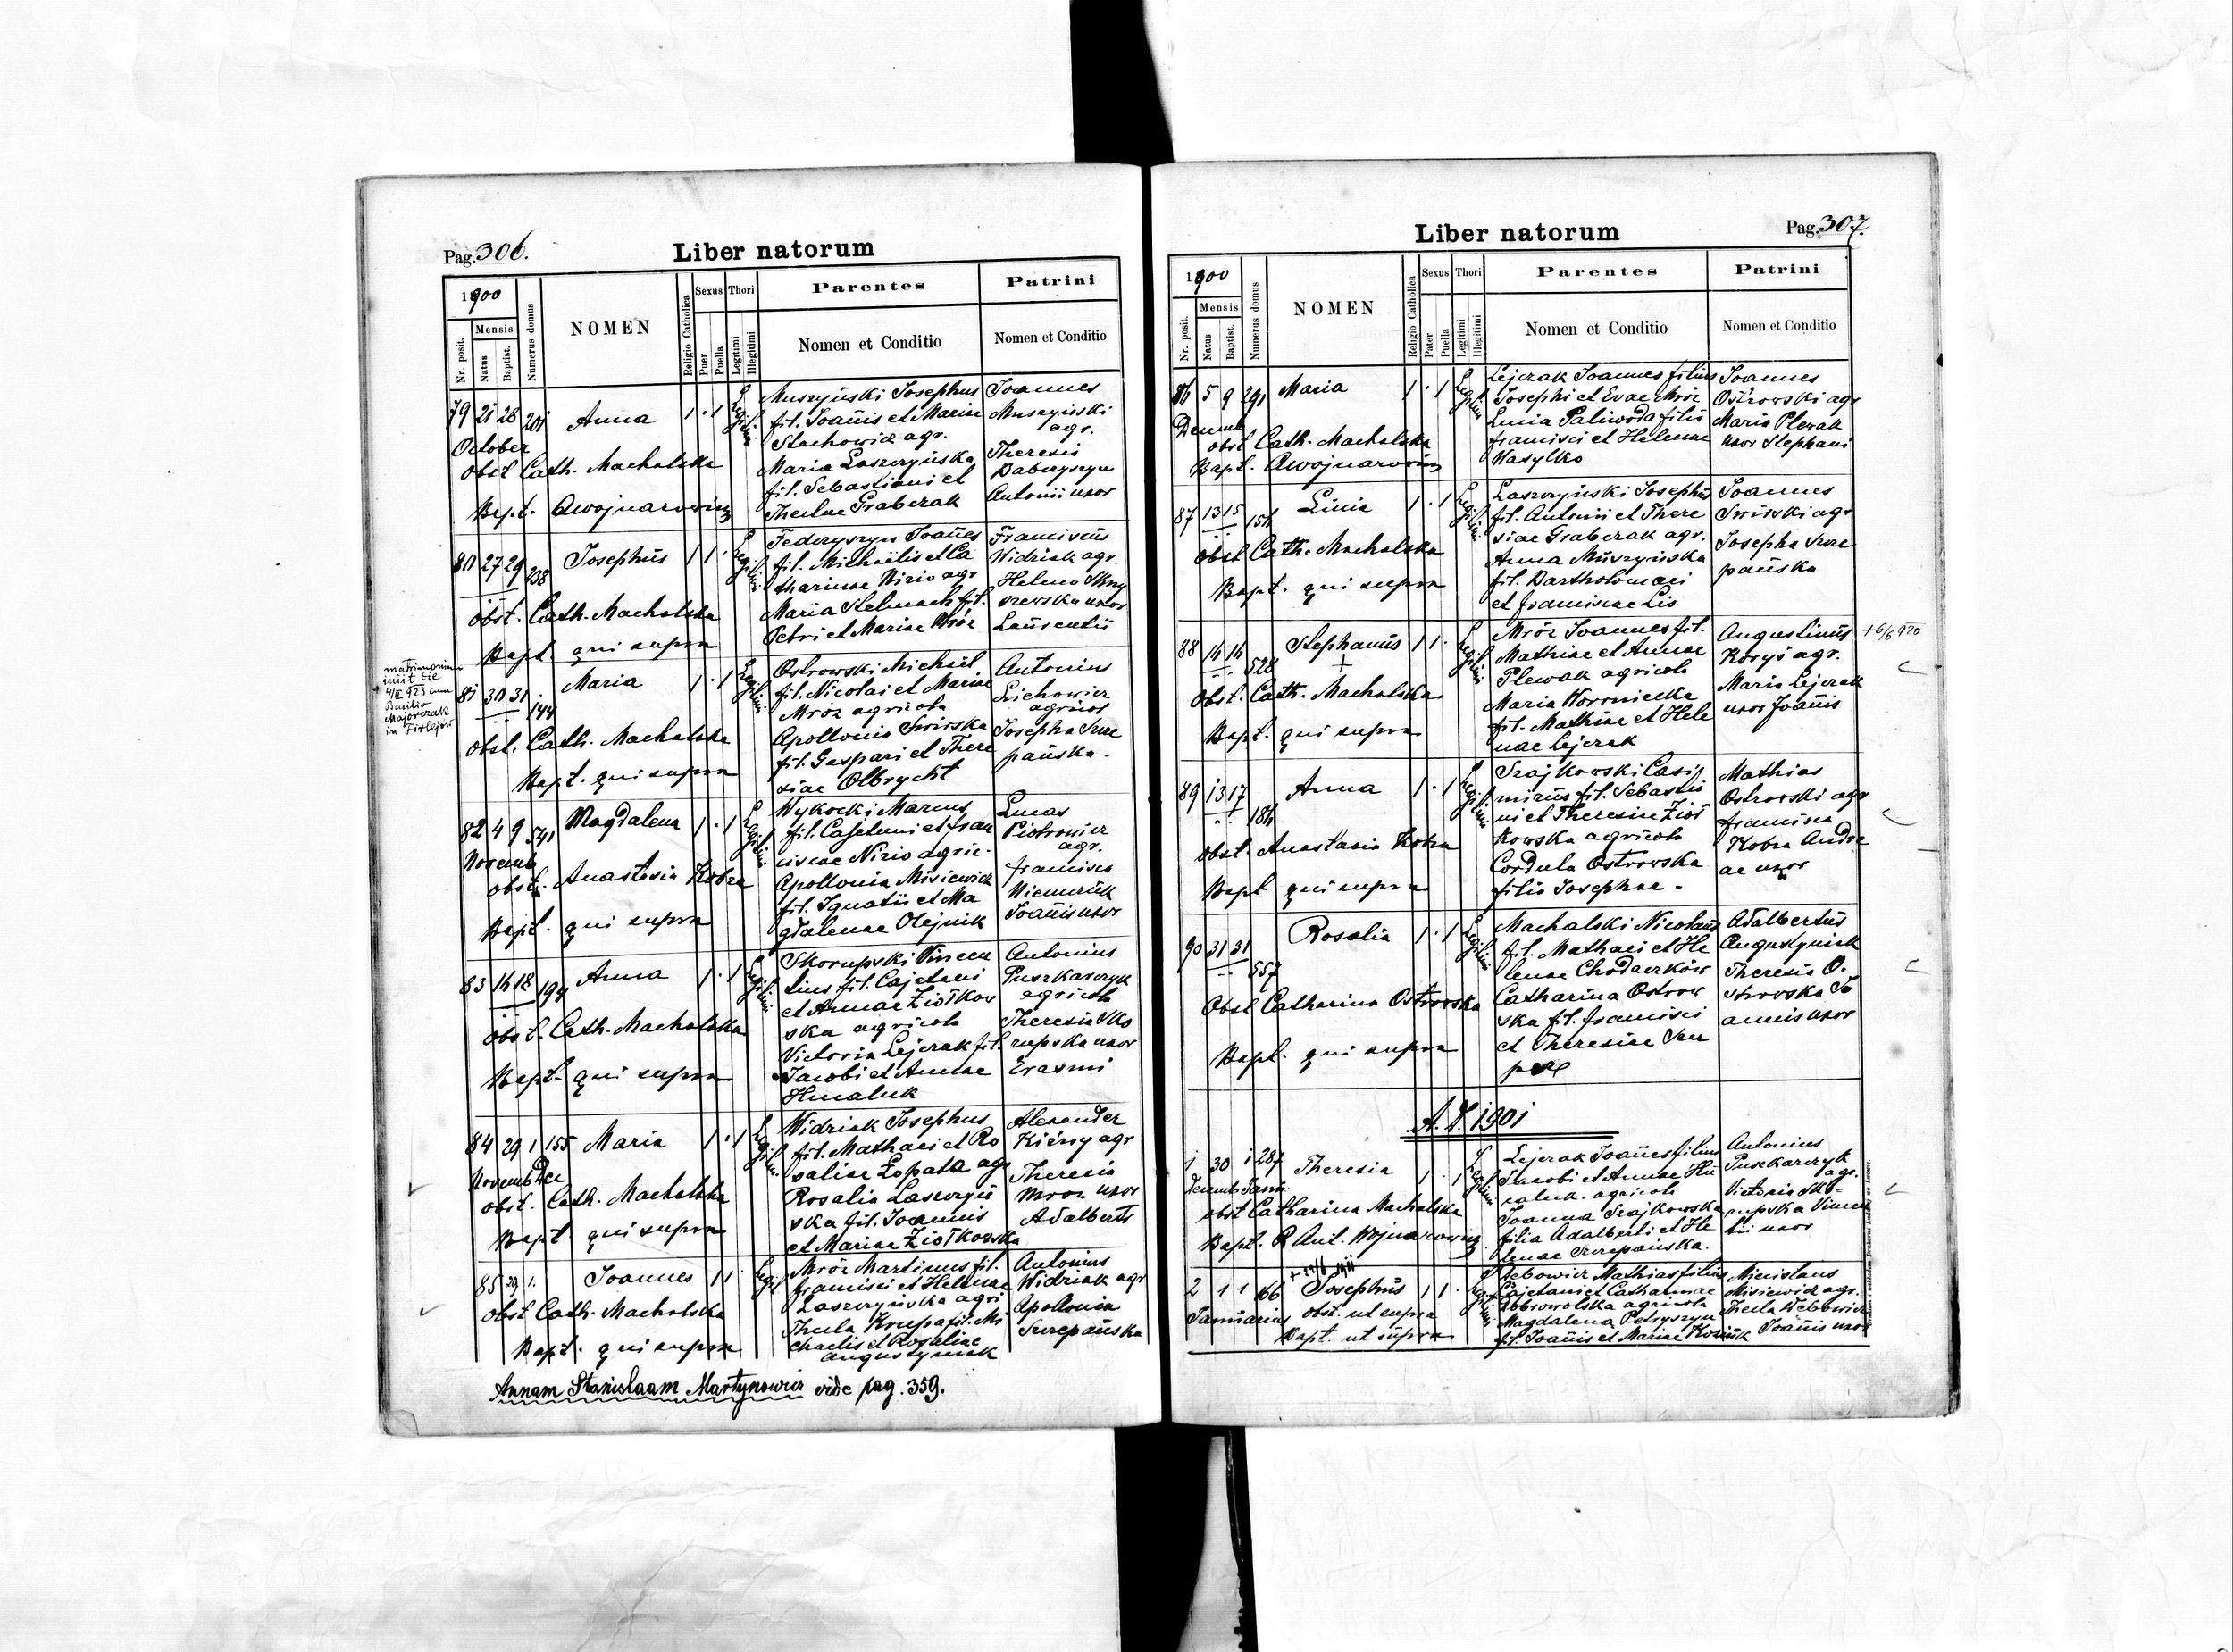 Pag. 306.
Liber natorum
1900
Nr. posit.
Mensis
Natus
Baptist.
Numerus domus
NOMEN
Religio Catholica
Sexus
Puer
Puella
Thori
Legitimi
Illegitimi
Parentes
Nomen et Conditio
Patrini
Nomen et Conditio
79 21 28 201 Anna 1 · 1 Legitimi
October
obst Cath. Machalska
Bapt. AWojnarowicz
Muszyński Josephus
fil. Joañis et Mariae
Stachowicz agr.
Maria Laszczyńska
fil. Sebastiani et
Theclae Grabczak
Joannes
Muszyński
agr.
Theresia
Daberyszyn
Antonii uxor
80 27 29 238 Josephus 1 1 · Legitimi
obst. Cath. Machalska
Bapt. qui supra
Federyszyn Joañes
fil. Michaëlis et Ca
tharinae Nizio agr
Maria Stelmach fil.
Petri et Mariae Mróz
Franciscus
Widziak agr.
Helena Skry
szewska uxor
Laurentii
matrimonium
iniit die
4/II 923 cum
Basilio
Majorczak
in Firlejów
81 30 31 144 Maria 1 · 1 Legitimi
obst. Cath. Machalska
Bapt. qui supra
Ostrowski Michaël
fil. Nicolai et Mariae
Mróz agricola
Apollonia Swirska
fil. Gaspari et There
siae Olbrycht
Antonius
Lichowicz
agricol
Josepha Szcze
pańska.
82 4 9 541 Magdalena 1 · 1 Legitimi
Novemb
obst. Anastasia Kobza
Bapt. qui supra
Wykocki Marcus
fil. Cajetani et Fran
ciscae Nizio agric.
Apollonia Misiewicz
fil. Ignatii et Ma
gdalenae Olejnik
Lucas
Piotrowicz
agr.
Francisca
Niemczuk
Joañis uxor
83 16 18 194 Anna 1 · 1 Legitimi
obst. Cath. Machalska
Bapt. qui supra
Skorupski Vincen
tius fil. Cajetani
et Annae Ziółkow
ska agricola
Victoria Lejczak fil.
Jacobi et Annae
Hnatuk
Antonius
Puszkarczyk
agricola
Theresia Sko
rupska uxor
Erasmi
84 29 1 155 Maria 1 · 1 Legitimi
Novemb Dec
obst. Cath. Machalska
Bapt qui supra
Widziak Josephus
fil. Mathaei et Ro
saliae Łopata agr
Rosalia Laszczyń
ska fil. Joannis
et Mariae Ziółkowska
Alexander
Kiérsy agr
Theresia
Mroz uxor
Adalberti
85 29 1. Joannes 1 1 · Legit
obst Cath. Machalska
Bapt. qui supra
Mróz Martinus fil.
Francisci et Helenae
Laszczyńska agri
Thecla Krupa fil. Mi
chaelis et Rosaliae
Augustyniak
Antonius
Widziak agr
Apollonia
Szczepańska
Annam Stanislaam Martynowicz vide pag. 359.
Pag. 307.
Liber natorum
1900
Nr. posit.
Mensis
Natus
Baptist.
Numerus domus
NOMEN
Religio Catholica
Sexus
Puer
Puella
Thori
Legitimi
Illegitimi
Parentes
Nomen et Conditio
Patrini
Nomen et Conditio
86 5 9 291 Maria 1 · 1 Legitimi
Decemb
obst Cath. Machalska
Bapt. AWojnarowicz
Lejczak Joannes filius
Josephi et Evae Mróz
Lucia Paliwoda filia
Francisci et Helenae
Wasylko
Joannes
Ostrowski agr
Maria Plewak
uxor Stephani
87 13 15 154 Lucia 1 · 1 Legitimi
obst Cath. Machalska
Bapt. qui supra
Laszczyński Josephus
fil. Antonii et There
siae Grabczak agr.
Anna Muszyńska
fil. Bartholomaei
et Franciscae Lis
Joannes
Swirski agr
Josepha Szcze
pańska
88 16 16 528 Stephanus 1 1 · Legitimi
+
obst. Cath. Machalska
Bapt. qui supra
Mróz Joannes fil.
Mathiae et Annae
Plewak agricola
Maria Woroniecka
fil. Mathiae et Hele
nae Lejczak
Augustinus
Koryś agr.
Maria Lejczak
uxor Joañis
+6/6 920
89 13 17 184 Anna 1 · 1 Legitimi
obst. Anastasia Kobza
Bapt qui supra
Szajkowski Casi
mirus fil. Sebastia
ni et Theresiae Ziół
kowska agricola
Cordula Ostrowska
filia Josephae.
Mathias
Ostrowski agr
Francisca
Kobza Andre
ae uxor
90 31 31 557 Rosalia 1 · 1 Legitimi
Obst Catharina Ostrowska
Bapt. qui supra
Machalski Nicolaus
fil. Mathaei et He
lenae Chodaczków
Catharina Ostrow
ska fil. Francisci
et Theresiae
Adalbertus
Augustyniak
Theresia O.
strowska Jo
annis uxor
A.D. 1901
1 30 1 287 Theresia 1 · 1 Legitimi
Decemb Janu
obst Catharina Machalska
Bapt. R Ant. Wojnarowicz
Lejczak Joañes filius
Jacobi et Annae Hn
atuk. agricola
Joanna Szajkowska
filia Adalberti et He
lenae Szczepańska.
Antonius
Puszkarczyk
agr.
Victoria Sko-
rupska Vincen
tii uxor
2 1 1 66 Josephus 1 1 · Legitimi
Januarius obst. ut supra
Bapt. ut supra
Webowicz Mathias filius
Cajetani et Catharinae
Dobrowolska agricola
Magdalena Petryszyn
fil. Joañis et Mariae Koziuk
Micislaus
Misiewicz agr.
Thecla Webowicz
Joañis uxor